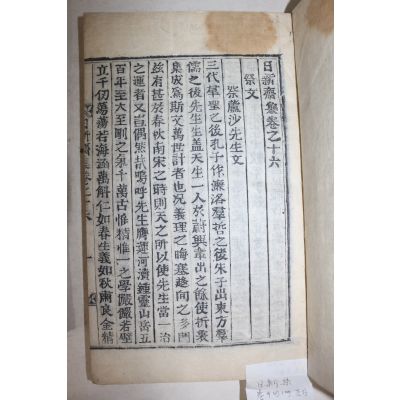 日新齋集卷之十六
祭文
祭蘆沙先生文
三代羣聖之後孔子作濂洛羣哲之後朱子出東方羣
儒之後先生生盖天生一人於蔚興輩出之餘使折衷
集成爲斯文萬世計者也况義理之晦塞趍向之多門
玆有甚於春秋南宋之時則天之所以使先生當一治
之運者又豈偶然哉嗚呼先生膺運河瀆鍾靈山嶽五
百年至大至剛之氣千萬古惟精惟一之學嚴嚴若壁
立千仞蕩蕩若海涵萬斛仁如春生義如秋肅良金精